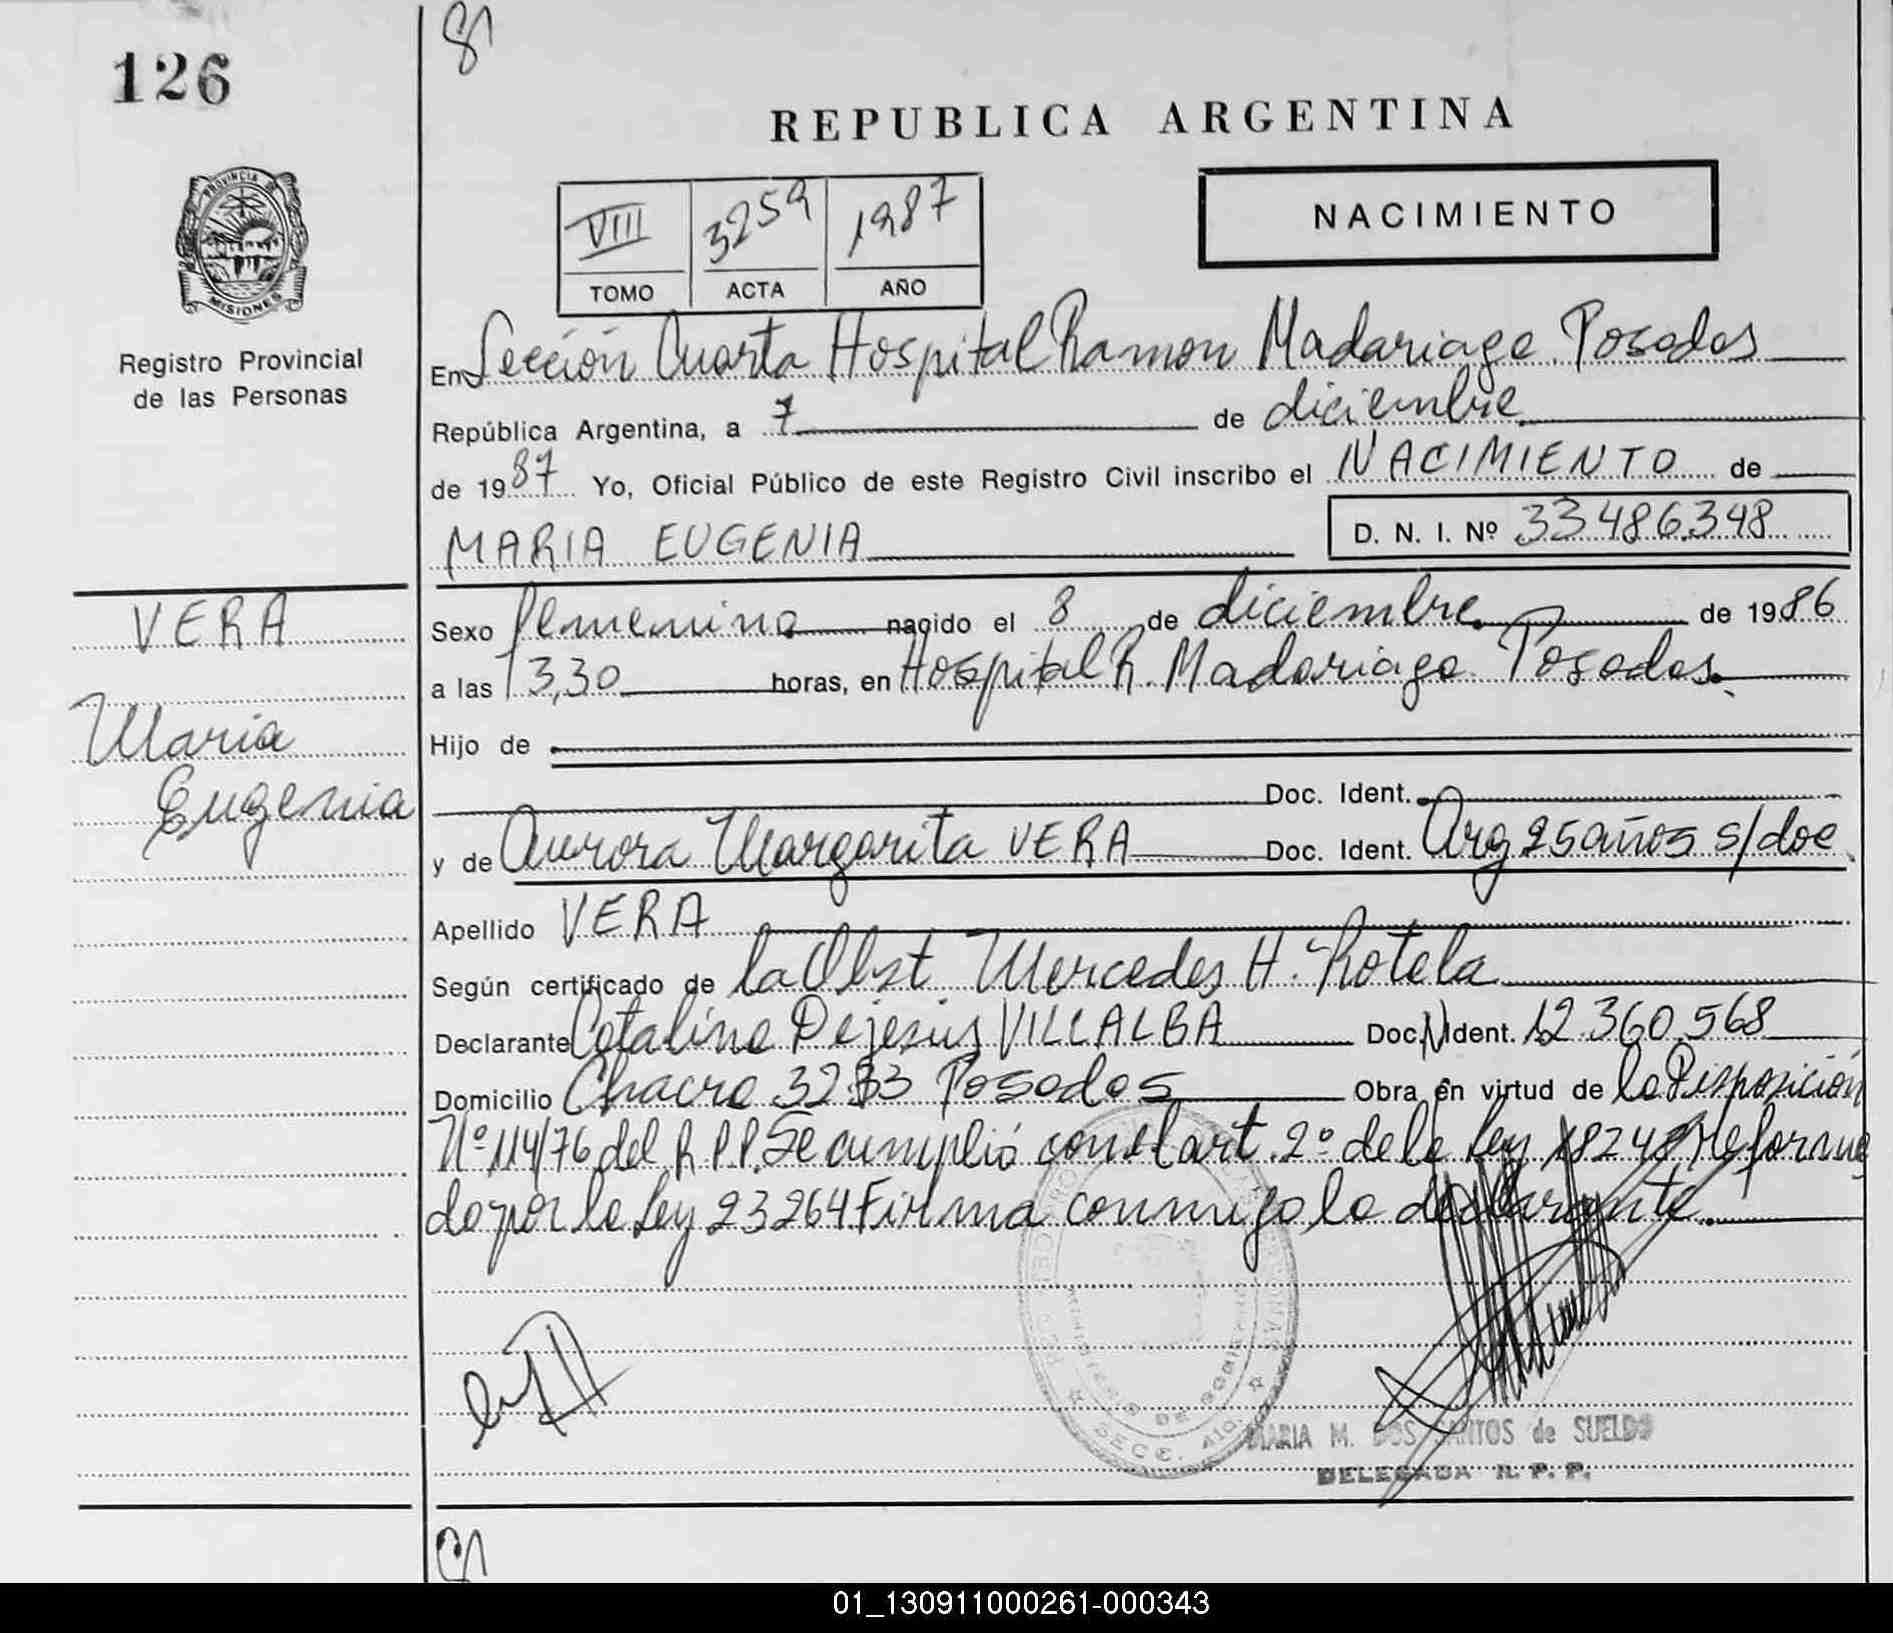 126
REPUBLICA ARGENTINA
NACIMIENTO
VIII 3259 1987
TOMO ACTA AÑO
PROVINCIA DE
MISIONES
Registro Provincial
de las Personas
En Sección Cuarta Hospital Ramon Madariaga Posadas
República Argentina, a 7 de diciembre
de 1987 Yo, Oficial Público de este Registro Civil inscribo el NACIMIENTO de
MARIA EUGENIA D. N. I. Nº 33.486.348
VERA
Maria
Eugenia
Sexo femenino nacido el 8 de diciembre de 1986
a las 13,30 horas, en Hospital R. Madariaga Posadas.
Hijo de
Doc. Ident.
y de Aurora Margarita VERA Doc. Ident. Arg 25 años s/doc
Apellido VERA
Según certificado de la Obst Mercedes H. Rotela
Declarante Catalina Dejesus VILLALBA Doc. N Ident. 12.360.568
Domicilio Chacra 32 33 Posadas Obra en virtud de la Disposición
Nº 114/76 del R.P.P. Se cumplió con el art. 2º de la Ley 18248 Reforma
da por la Ley 23264 Firma conmigo la declarante.
MARIA M. DOS SANTOS de SUELDO
DELEGADA R. P. P.
01_130911000261-000343